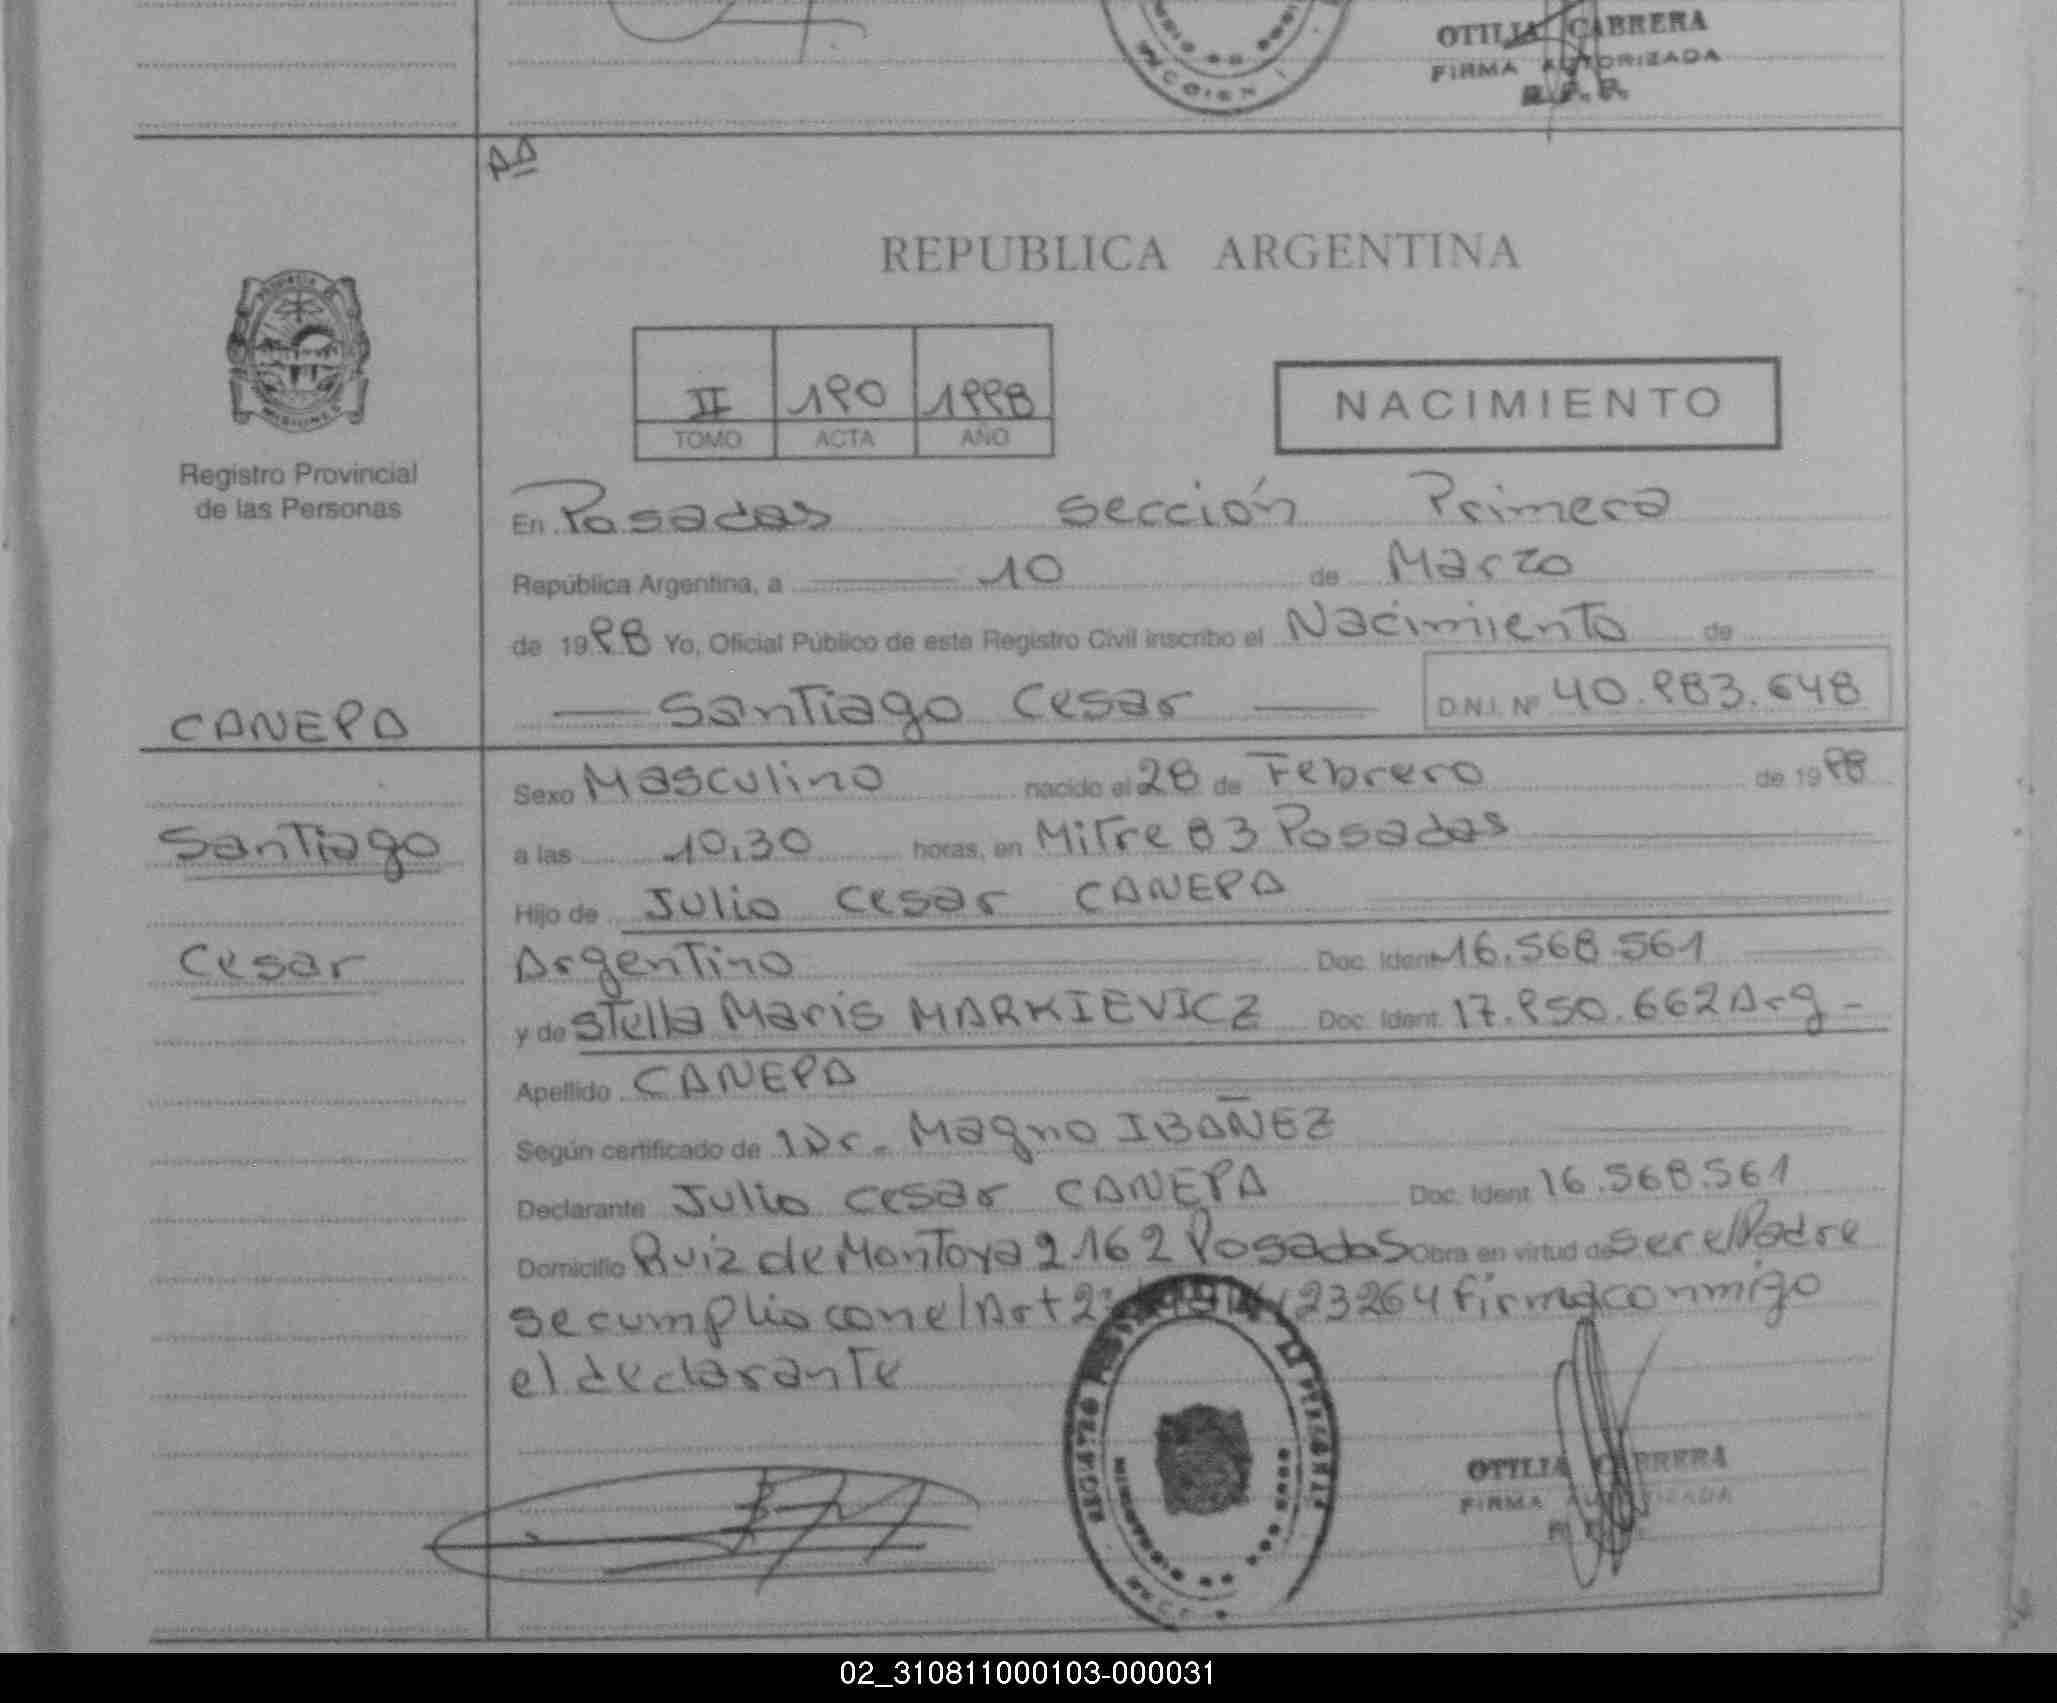 OTILIA CABRERA
FIRMA AUTORIZADA
R.P.P.
AA
REPUBLICA ARGENTINA
II 190 1998
TOMO ACTA AÑO
NACIMIENTO
Registro Provincial
de las Personas
En Posadas sección Primera
República Argentina, a 10 de Marzo
de 1998 Yo, Oficial Público de este Registro Civil inscribo el Nacimiento de
CANEPA
Santiago Cesar D.N.I. Nº 40.983.648
Sexo Masculino nacido el 28 de Febrero de 1998
Santiago
a las 10,30 horas, en Mitre 83 Posadas
Hijo de Julio Cesar CANEPA
Cesar
Argentino Doc. Ident. 16.568.561
y de Stella Maris MARKIEVICZ Doc. Ident. 17.950.662 Arg -
Apellido CANEPA
Según certificado de Dr. Magno IBAÑEZ
Declarante Julio Cesar CANEPA Doc. Ident. 16.568.561
Domicilio Ruiz de Montoya 2162 Posadas Obra en virtud de ser el Padre
se cumplio con el Art 2 23264 firma conmigo
el declarante
REGISTRO LAS PERSONAS
OTILIA CABRERA
FIRMA AUTORIZADA
02_310811000103-000031